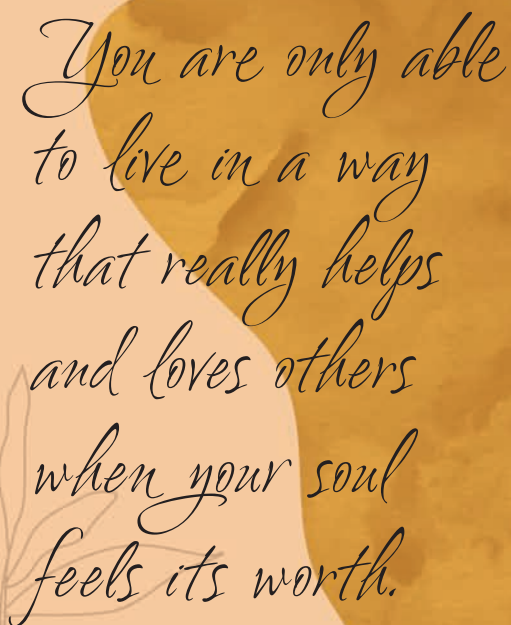 You are only able
to live in a way
that really helps
and loves others
when your soul
feels its worth.